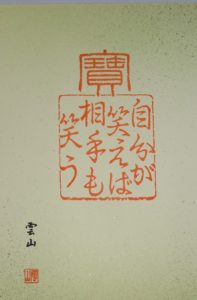 寶
自分が
笑えば
相手も
笑う
雲山